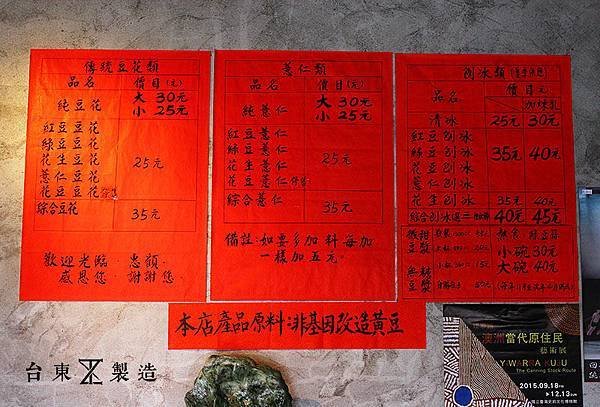 傳統豆花類
品名 價目(元)
純豆花 大 30元
小 25元
紅豆豆花
綠豆豆花
花生豆花
薏仁豆花
花豆豆花
25元
綜合豆花 35元
歡迎光臨．忠顧．
感恩您．謝謝您
薏仁類
品名 價目(元)
純薏仁 大 30元
小 25元
紅豆薏仁
綠豆薏仁
花生薏仁
花豆薏仁
25元
綜合薏仁 35元
備註:如要多加料每加
一樣加五元.
刨冰類
品名 價目元
加煉乳
清冰 25元 30元
紅豆刨冰
綠豆刨冰
花豆刨冰
薏仁刨冰
35元 40元
花生刨冰 35元 40元
綜合刨冰 40元 45元
微甜豆漿
無糖豆漿
小碗30元
大碗40元
本店產品原料:非基因改造黃豆
台東 製造
澳洲當代原住民
藝術展
YIWARRA KUJU
The Canning Stock Route
2015.09.18FRI
▶12.13SUN